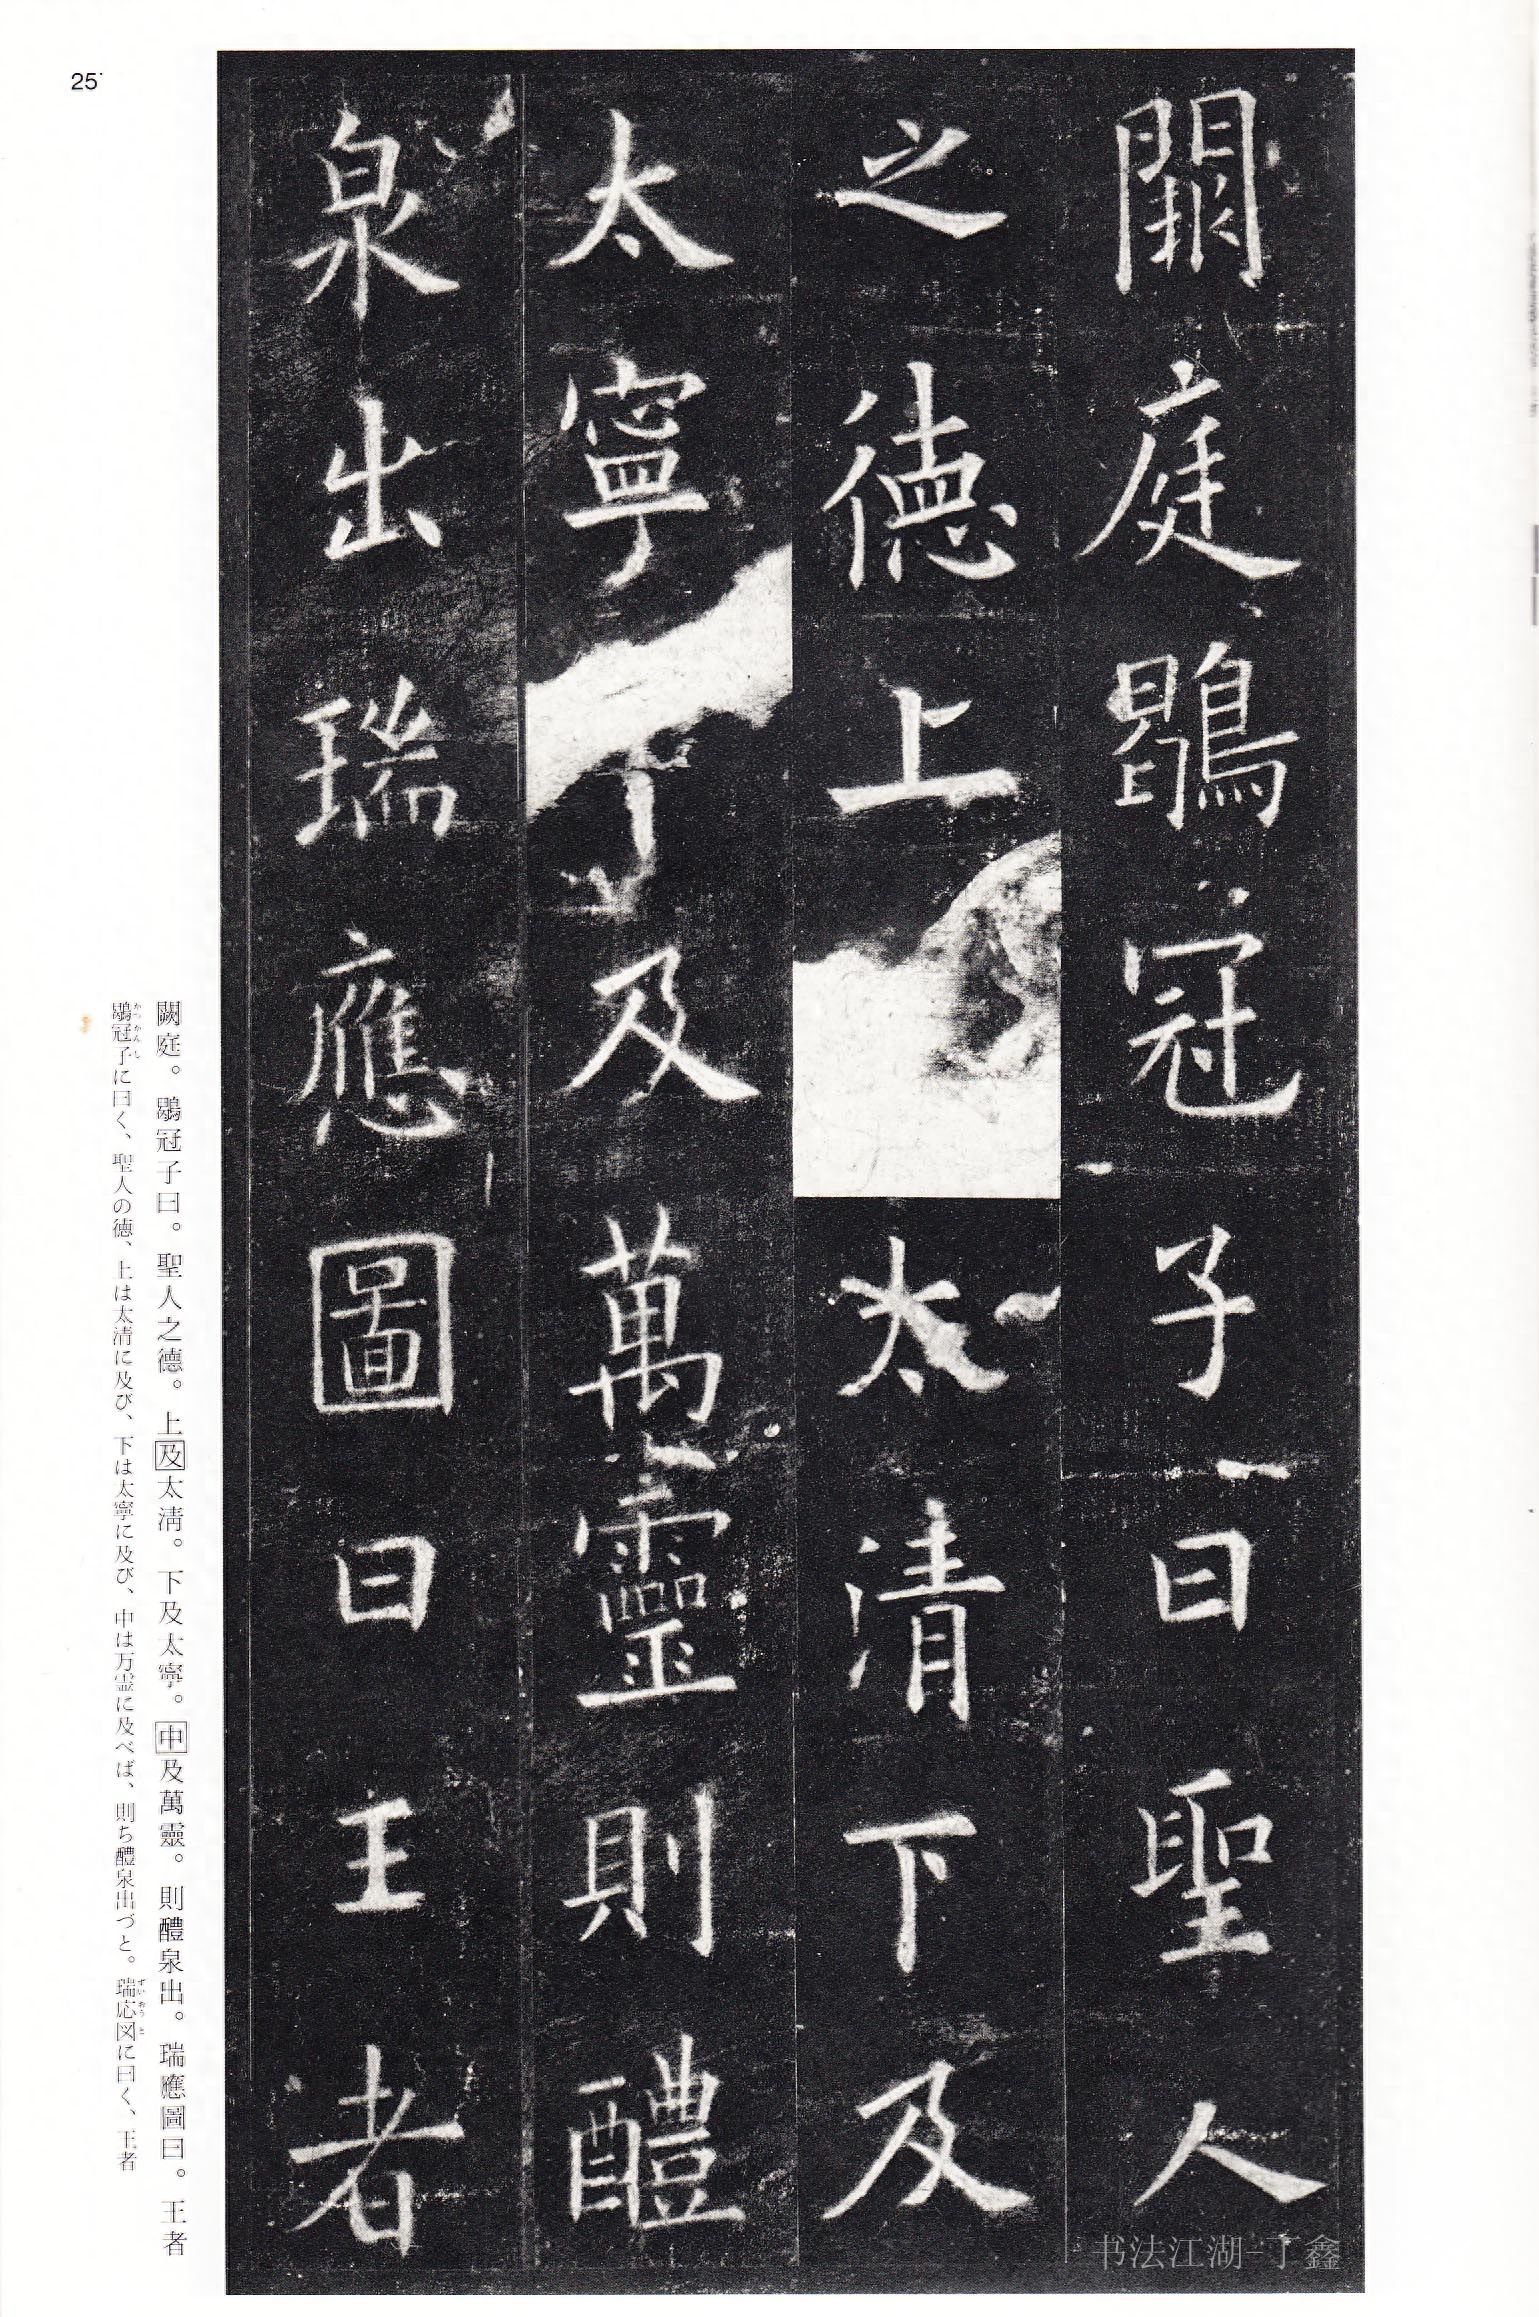 25
闕庭鶡冠子曰聖人
之德上太清下及
太寧及萬靈則醴
泉出瑞應圖曰王者
闕庭。鶡冠子曰。聖人之德。上及太清。下及太寧。中及萬靈。則醴泉出。瑞應圖曰。王者
鶡冠子に曰く、聖人の徳、上は太清に及び、下は太寧に及び、中は万霊に及べば、則ち醴泉出づと。瑞応図に曰く、王者
かつかんし
ずいおうと
书法江湖-丁鑫